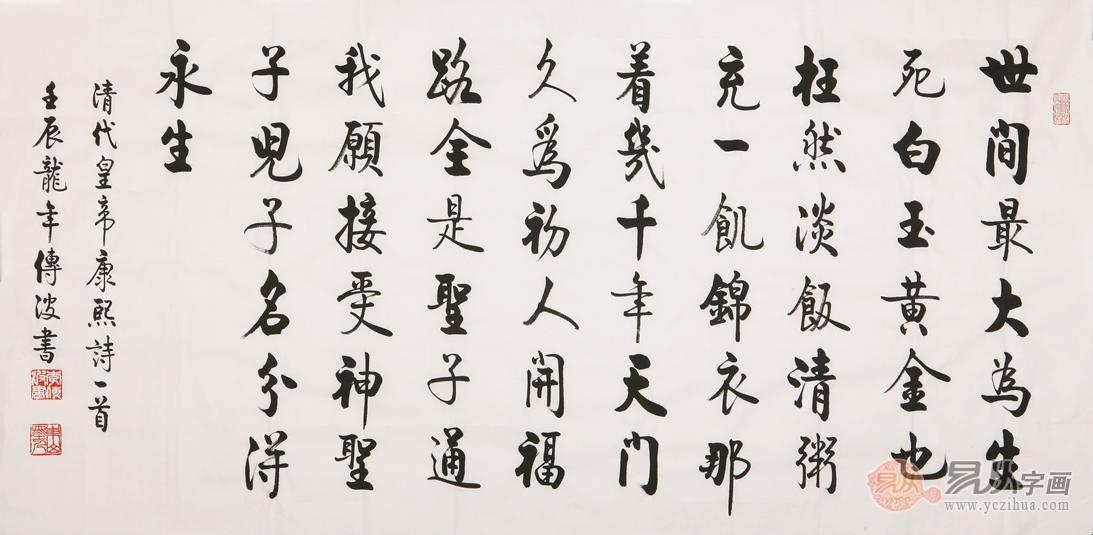 世間最大為生
死白玉黃金也
枉然淡飯清粥
充一飢錦衣那
着幾千年天門
久爲初人開福
路全是聖子通
我願接受神聖
子兒子名分得
永生
清代皇帝康熙詩一首
壬辰龍年傳波書
易从字画
www.yczihua.com